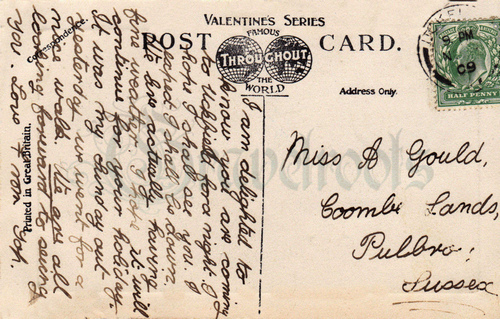 VALENTINE'S SERIES
POST CARD.
FAMOUS
THROUGHOUT
THE
WORLD
Correspondence.
Address Only.
Printed in Great Britain.
HALF PENNY
5 PM
09
I am delighted to
know you are coming
to Uckfield, good night I
hope I shall see you. I
expect I shall be down.
We are actually having
fine weather. I hope it will
continue for your holiday.
It was my Sunday out
yesterday we went for a
nice walk. We are all
looking forward to seeing
you. Love from
Miss A Gould,
Coombe Lands,
Pulbro;
Sussex.